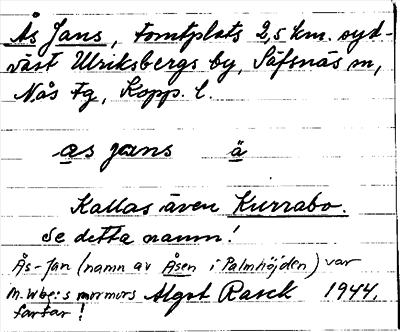 Ås Jans, tomtplats 2,5 km. syd-
väst Ulriksbergs by, Säfsnäs sn,
Nås tg, Kopp. l.
as jans ä
Kallas även Kurrabo.
Se detta namn!
Ås-Jan (namn av Åsen i Palmhöjden) var
m. wbg:s mormors Algot Rasck 1944.
farfar!